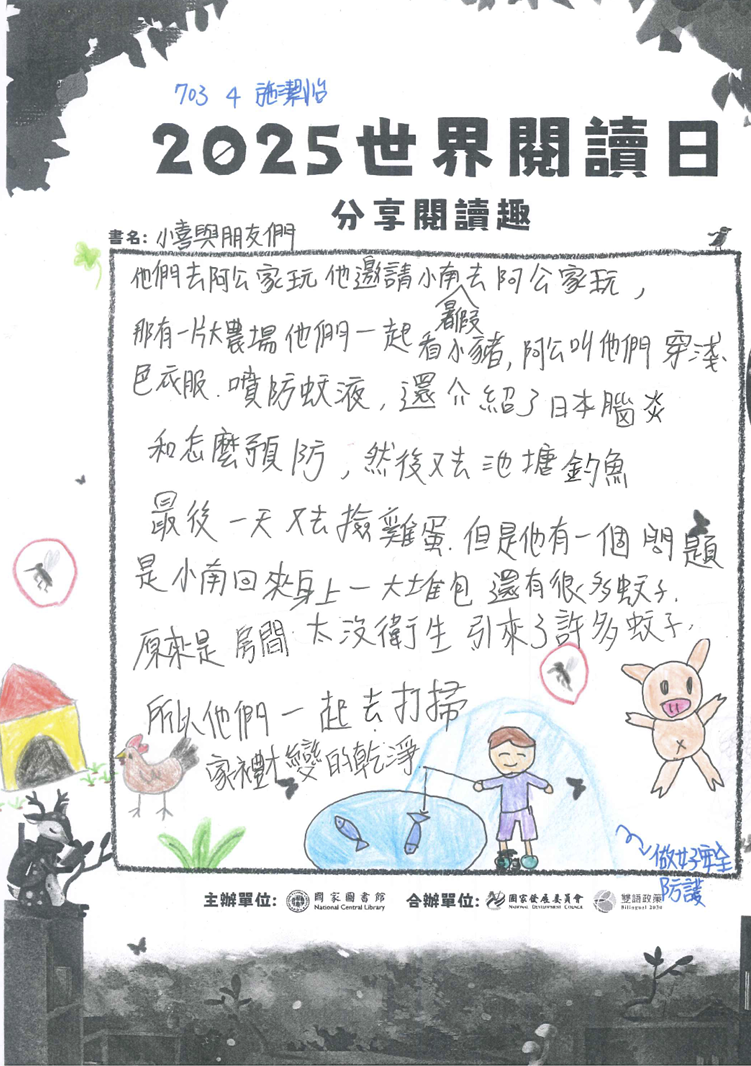 703 4 施潔怡
2025世界閱讀日
分享閱讀趣
書名: 小喜與朋友們
他們去阿公家玩他邀請小南暑假去阿公家玩,
那有一片大農場他們一起看小豬,阿公叫他們穿淺
色衣服.噴防蚊液,還介紹了日本腦炎
和怎麼預防,然後又去池塘釣魚
最後一天又去撿雞蛋.但是他有一個問題
是小南回來身上一大堆包還有很多蚊子.
原來是房間太沒衛生引來了許多蚊子.
所以他們一起去打掃
家裡才變的乾淨
做好安全
防護
主辦單位: 國家圖書館 National Central Library 合辦單位: 國家發展委員會 National Development Council 雙語政策 Bilingual 2030